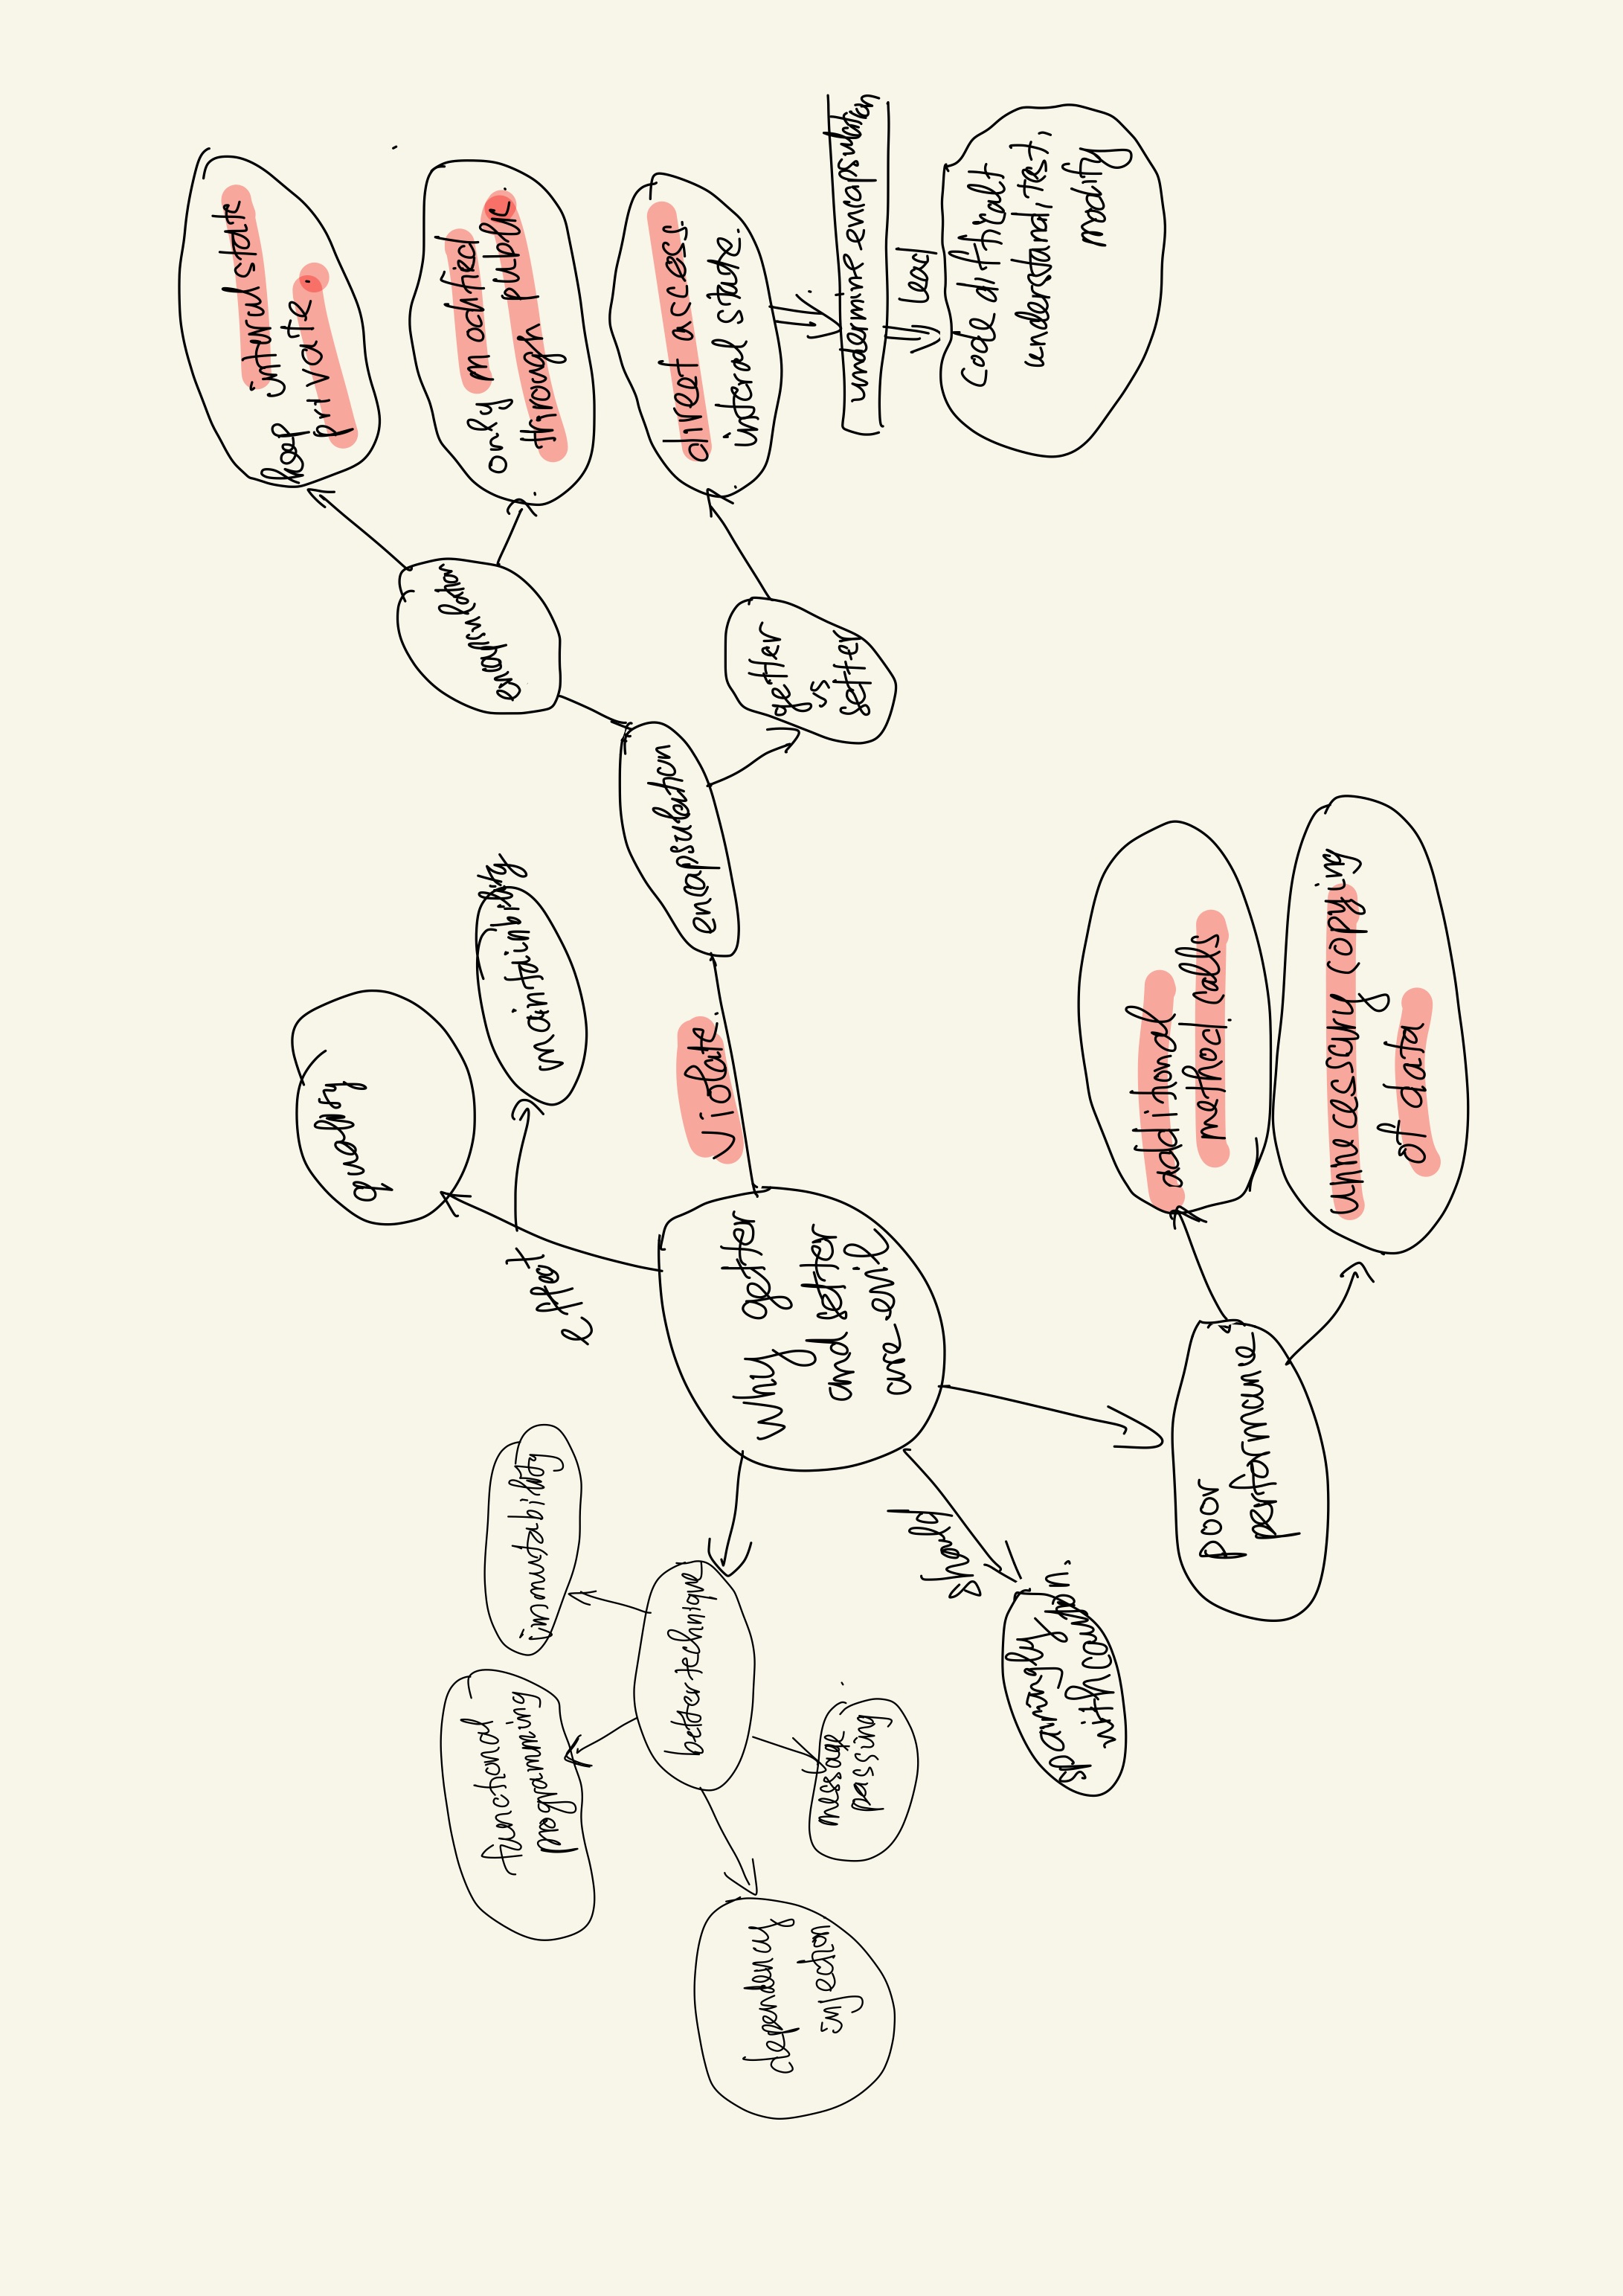 why getter
and setter
are evil
violate.
encapsulation
encapsulation
keep interal state
private.
only modified
through public.
getter
vs
setter
direct access
interal state.
undermine encapsulation
lead
Code difficalt
understand, test,
modify
effect
quality
maintainability
poor
performance
additional
method calls
unnecessary copying
of data
should
sparingly
with caution.
better technique
immutability
functional
programming
message
passing
dependency
injection